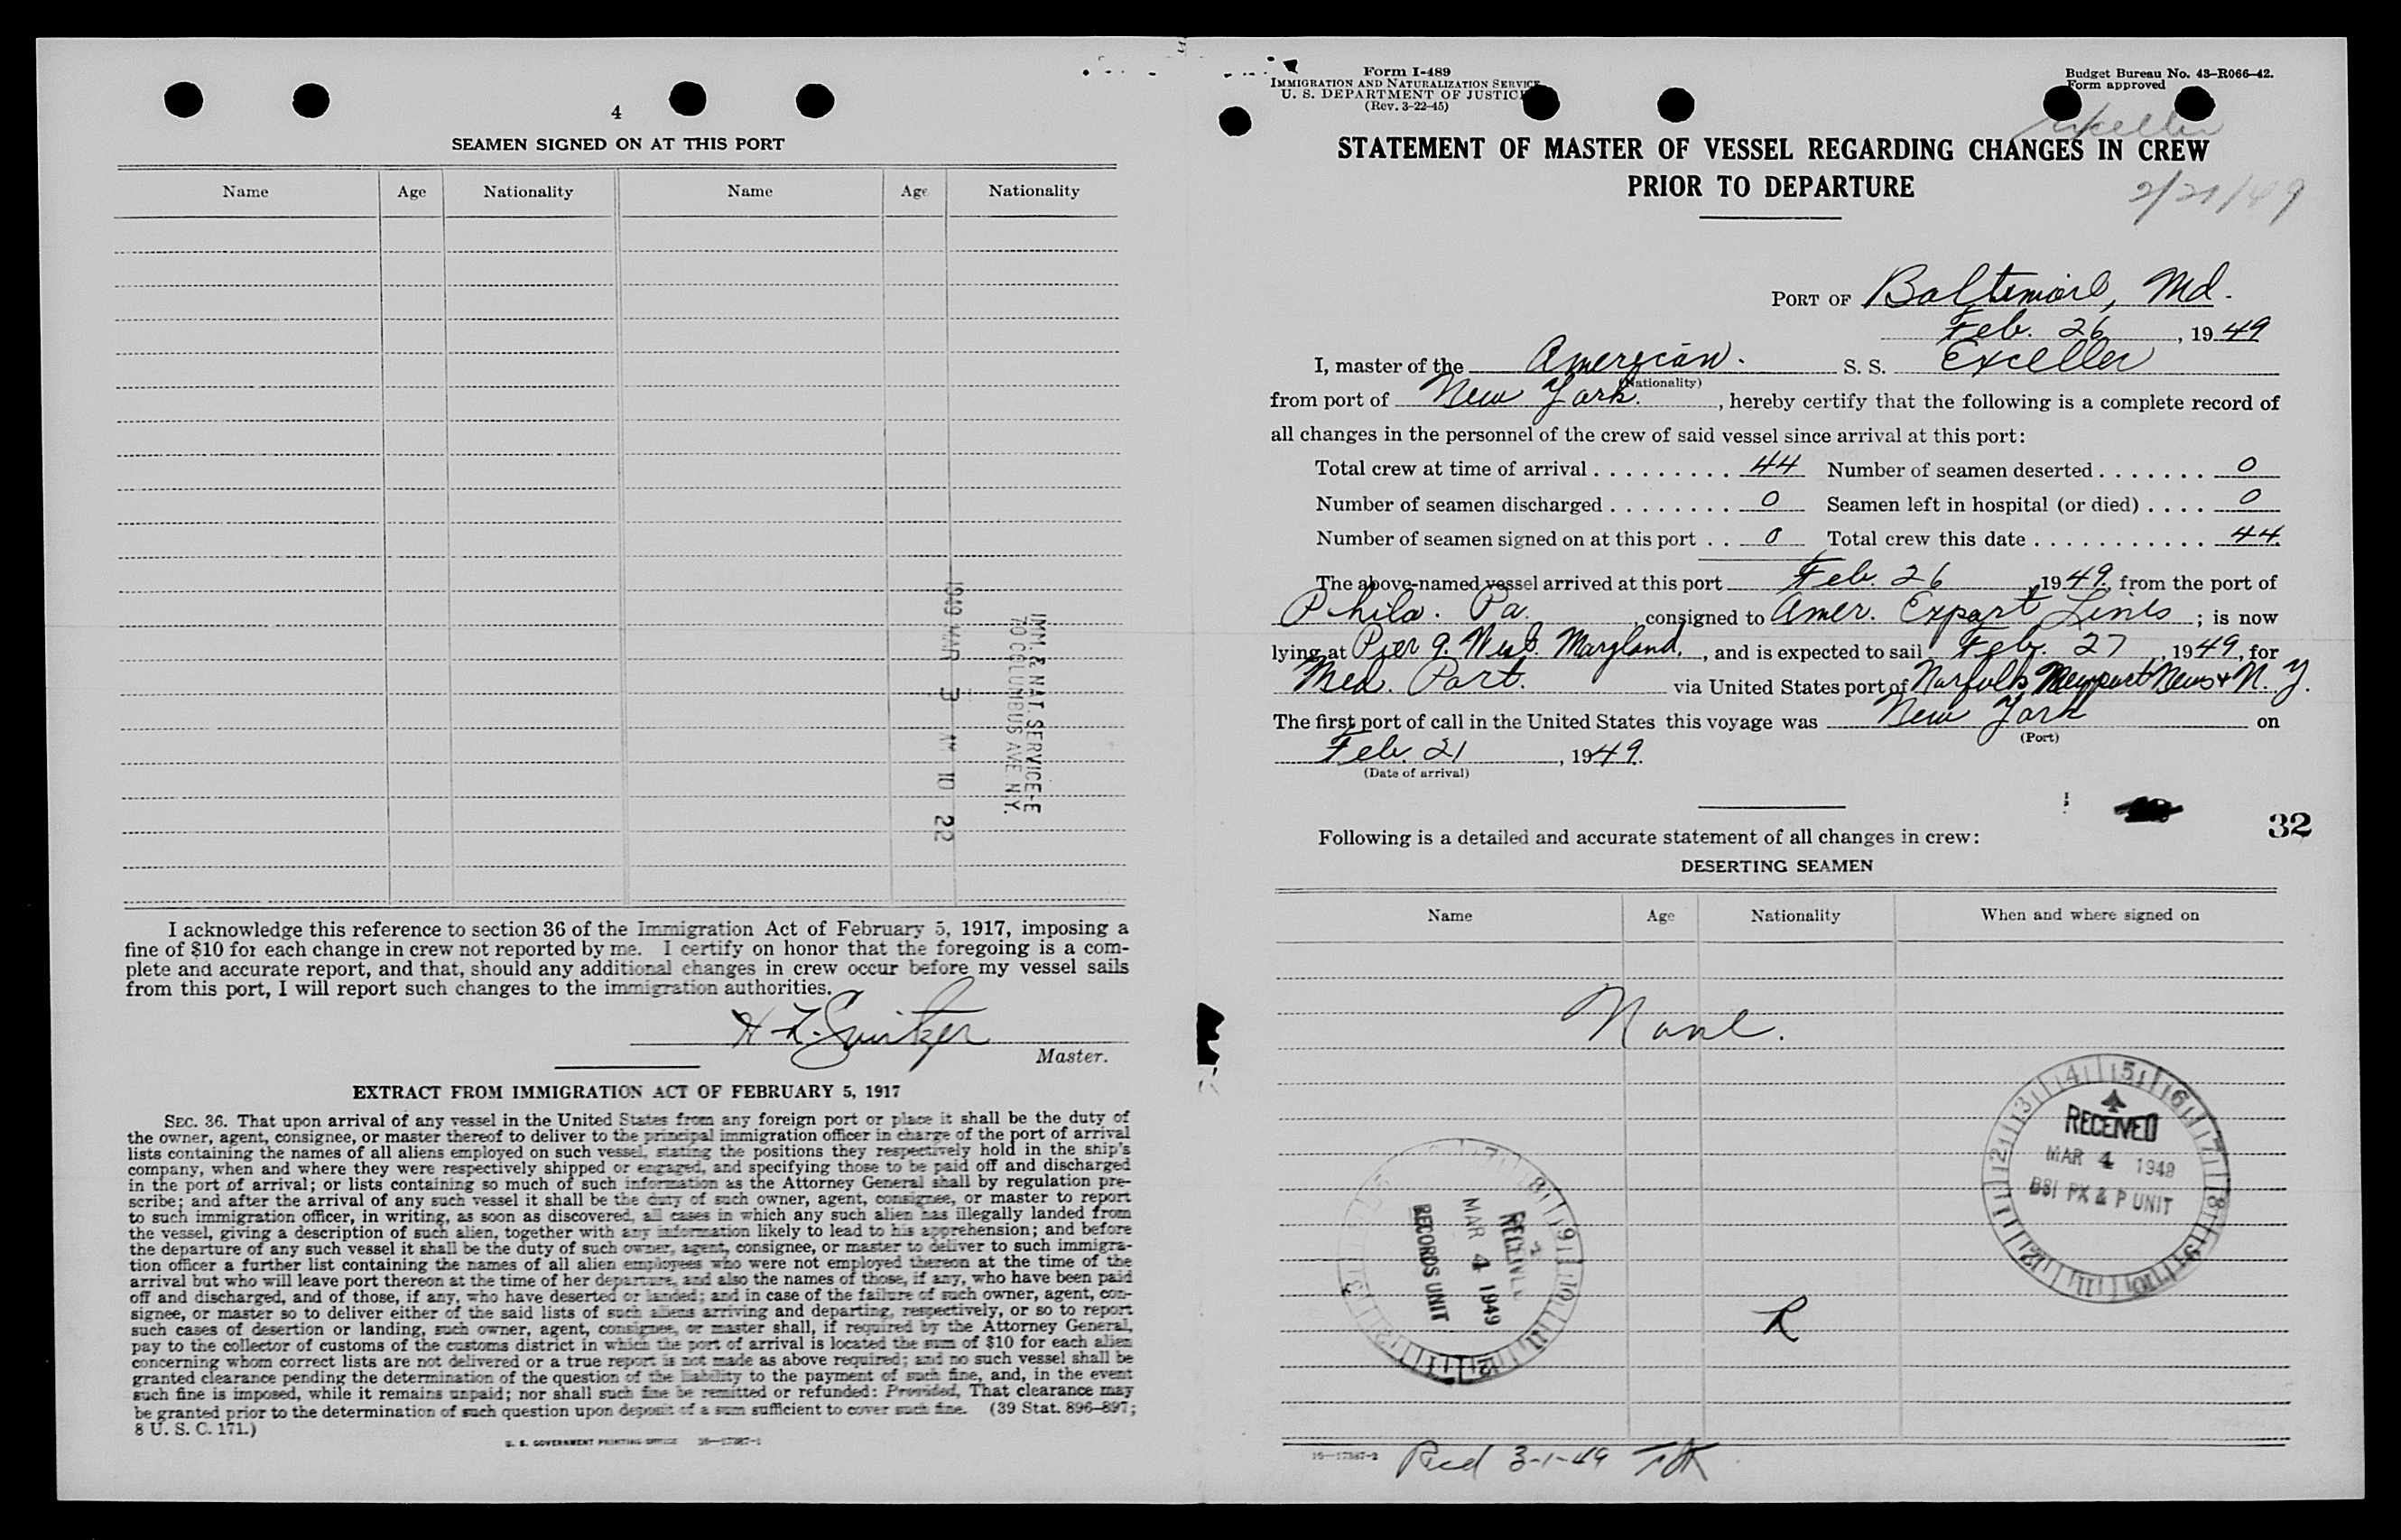 4
SEAMEN SIGNED ON AT THIS PORT
Name Age Nationality Name Age Nationality
IMM. & NAT. SERVICE-E
70 COLUMBUS AVE N.Y.
1949 MAR 3 AM 10 22
I acknowledge this reference to section 36 of the Immigration Act of February 5, 1917, imposing a
fine of $10 for each change in crew not reported by me. I certify on honor that the foregoing is a com-
plete and accurate report, and that, should any additional changes in crew occur before my vessel sails
from this port, I will report such changes to the immigration authorities.
H. L. Switzer
Master.
EXTRACT FROM IMMIGRATION ACT OF FEBRUARY 5, 1917
SEC. 36. That upon arrival of any vessel in the United States from any foreign port or place it shall be the duty of
the owner, agent, consignee, or master thereof to deliver to the principal immigration officer in charge of the port of arrival
lists containing the names of all aliens employed on such vessel, stating the positions they respectively hold in the ship's
company, when and where they were respectively shipped or engaged, and specifying those to be paid off and discharged
in the port of arrival; or lists containing so much of such information as the Attorney General shall by regulation pre-
scribe; and after the arrival of any such vessel it shall be the duty of such owner, agent, consignee, or master to report
to such immigration officer, in writing, as soon as discovered, all cases in which any such alien has illegally landed from
the vessel, giving a description of such alien, together with any information likely to lead to his apprehension; and before
the departure of any such vessel it shall be the duty of such owner, agent, consignee, or master to deliver to such immigra-
tion officer a further list containing the names of all alien employees who were not employed thereon at the time of the
arrival but who will leave port thereon at the time of her departure, and also the names of those, if any, who have been paid
off and discharged, and of those, if any, who have deserted or landed; and in case of the failure of such owner, agent, con-
signee, or master so to deliver either of the said lists of such aliens arriving and departing, respectively, or so to report
such cases of desertion or landing, such owner, agent, consignee, or master shall, if required by the Attorney General,
pay to the collector of customs of the customs district in which the port of arrival is located the sum of $10 for each alien
concerning whom correct lists are not delivered or a true report is not made as above required; and no such vessel shall be
granted clearance pending the determination of the question of the liability to the payment of such fine, and, in the event
such fine is imposed, while it remains unpaid; nor shall such fine be remitted or refunded: Provided, That clearance may
be granted prior to the determination of such question upon deposit of a sum sufficient to cover such fine. (39 Stat. 896-897;
8 U. S. C. 171.)
U. S. GOVERNMENT PRINTING OFFICE 16—17387-1
Form I-489
IMMIGRATION AND NATURALIZATION SERVICE
U. S. DEPARTMENT OF JUSTICE
(Rev. 3-22-45)
Budget Bureau No. 43-R066-42.
Form approved
Exceller
STATEMENT OF MASTER OF VESSEL REGARDING CHANGES IN CREW
PRIOR TO DEPARTURE
2/21/49
PORT OF Baltimore, Md.
Feb. 26, 1949
I, master of the American. S. S. Exceller
(Nationality)
from port of New York., hereby certify that the following is a complete record of
all changes in the personnel of the crew of said vessel since arrival at this port:
Total crew at time of arrival . . . . . . . . . 44 Number of seamen deserted . . . . . . . 0
Number of seamen discharged . . . . . . . . 0 Seamen left in hospital (or died) . . . . 0
Number of seamen signed on at this port . . 0 Total crew this date . . . . . . . . . . . 44
The above-named vessel arrived at this port Feb. 26, 1949. from the port of
Phila. Pa., consigned to Amer. Export Lines; is now
lying at Pier 9. West. Maryland., and is expected to sail Feb. 27, 1949, for
Med. Port. via United States port of Norfolk Newport News + N. Y.
The first port of call in the United States this voyage was New York on
(Port)
Feb. 21, 1949.
(Date of arrival)
32
Following is a detailed and accurate statement of all changes in crew:
DESERTING SEAMEN
Name Age Nationality When and where signed on
None.
RECEIVED
MAR 4 1949
BSI PX & P UNIT
RECEIVED
MAR 4 1949
RECORDS UNIT
R
16—17387-2
Recd 3-1-49